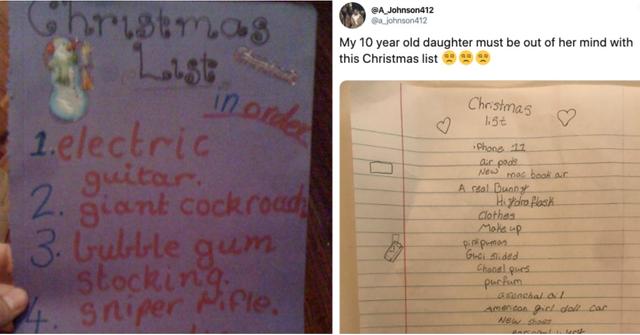 Christmas
List
in order
1. electric
guitar.
2. giant cockroach
3. bubble gum
stocking.
4. sniper rifle.
@A_Johnson412
@a_johnson412
My 10 year old daughter must be out of her mind with
this Christmas list
Christmas
list
iPhone 11
air pods
New mac book air
A real Bunny
Hydroflask
Clothes
Make up
pink pumas
Guci slides
Chanel purs
purfum
esenchal oil
American girl doll car
New shoes